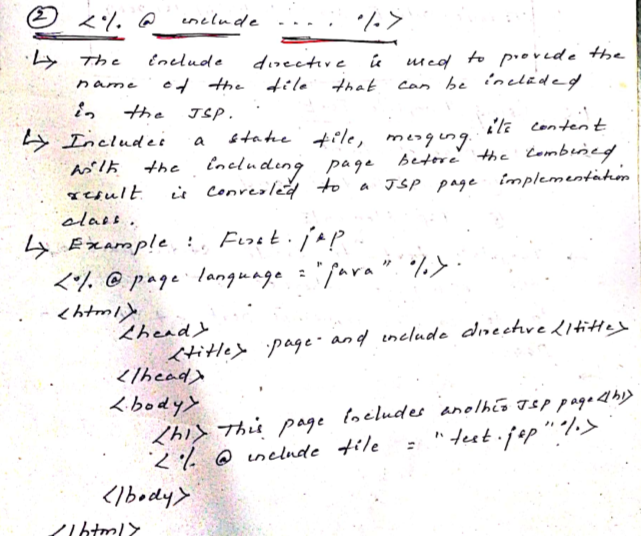 ② <% @ include .... %>
↳ The include directive is used to provide the
name of the file that can be included
in the JSP.
↳ Includes a static file, merging its content
with the including page before the combined
result is converted to a JSP page implementation
class.
↳ Example : First.jsp
<% @ page language = "java" %>
<html>
<head>
<title> page and include directive </title>
</head>
<body>
<h1> This page includes another JSP page </h1>
<% @ include file = "test.jsp" %>
</body>
</html>